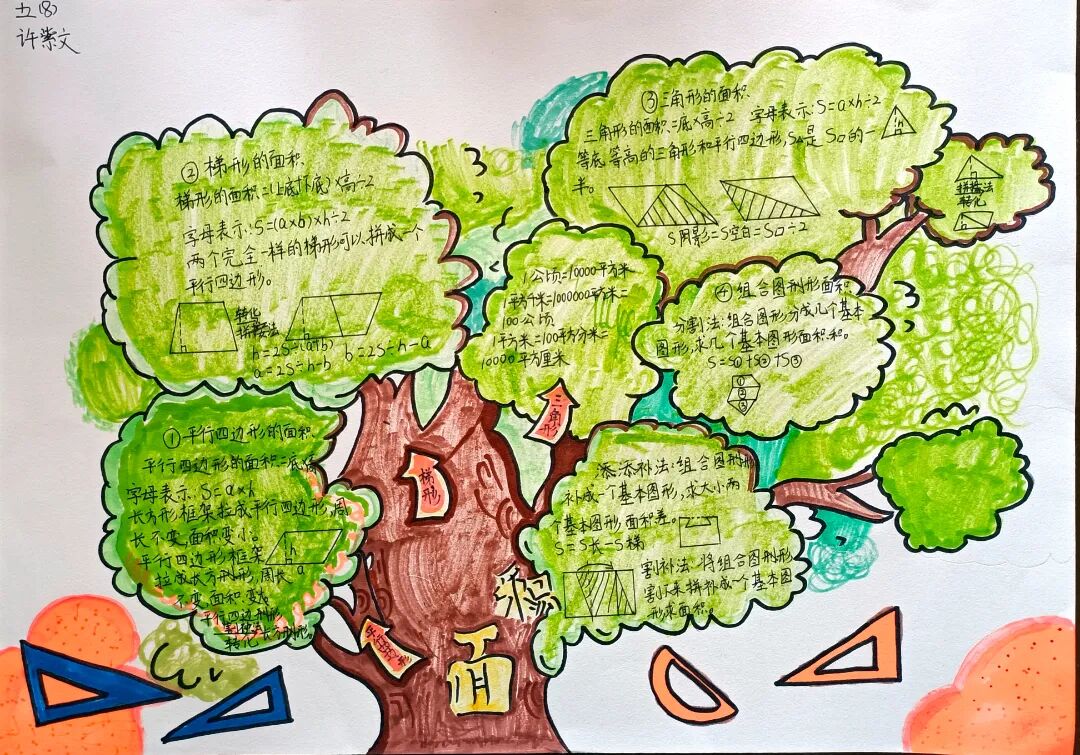 五(8)
许紫文
②梯形的面积
梯形的面积=(上底+下底)×高÷2
字母表示:S=(a×b)×h÷2
两个完全一样的梯形可以拼成一个
平行四边形。
转化
拼接法
h
h
h=2S÷(a+b) b=2S÷h-a
a=2S÷h-b
③三角形的面积
三角形的面积=底×高÷2 字母表示:S=a×h÷2
等底等高的三角形和平行四边形,S△是S▱的一
半。
h
S阴影=S空白=S▱÷2
拼接法
转化
1公顷=10000平方米
1平方千米=1000000平方米=
100公顷
1平方米=100平方分米=
10000平方厘米
④组合图形面积
分割法:组合图形分成几个基本
图形,求几个基本图形面积和。
S=S①+S②+S③
①
②
③
①平行四边形的面积
平行四边形的面积=底×高
字母表示:S=a×h
长方形框架拉成平行四边形,周
长不变,面积变小。
平行四边形框架
拉成长方形,周长
不变,面积变大
h
a
平行四边形
转化长方形。
添补法:组合图形
补成一个基本图形,求大小两
个基本图形面积差。
S=S长-S梯
割补法:将组合图形
割下来拼补成一个基本图
形求面积。
三角形
梯形
多
面